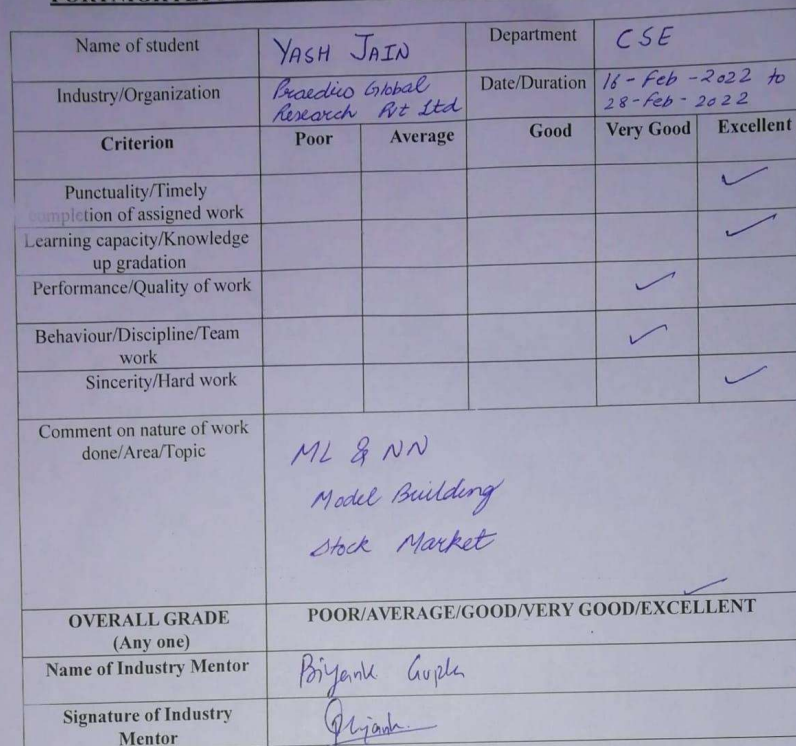 Name of student YASH JAIN Department CSE
Industry/Organization Praedico Global Research Pvt Ltd Date/Duration 16-Feb-2022 to 28-Feb-2022
Criterion Poor Average Good Very Good Excellent
Punctuality/Timely
completion of assigned work ✓
Learning capacity/Knowledge
up gradation ✓
Performance/Quality of work ✓
Behaviour/Discipline/Team
work ✓
Sincerity/Hard work ✓
Comment on nature of work
done/Area/Topic
ML & NN
Model Building
Stock Market
OVERALL GRADE
(Any one)
POOR/AVERAGE/GOOD/VERY GOOD/EXCELLENT ✓
Name of Industry Mentor Gupta
Signature of Industry
Mentor